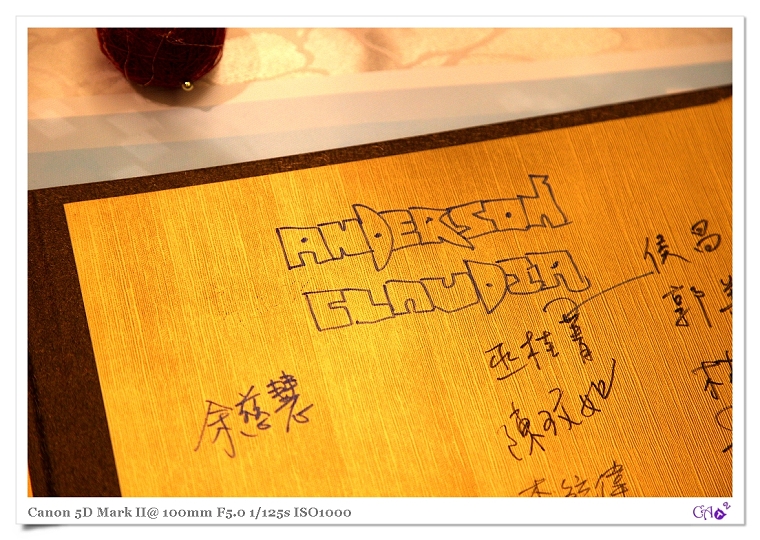 ANDERSON
CLAUDIA
侯昌
郭
巫桂菁
余慈慧
陳玟妃
Canon 5D Mark II@ 100mm F5.0 1/125s ISO1000